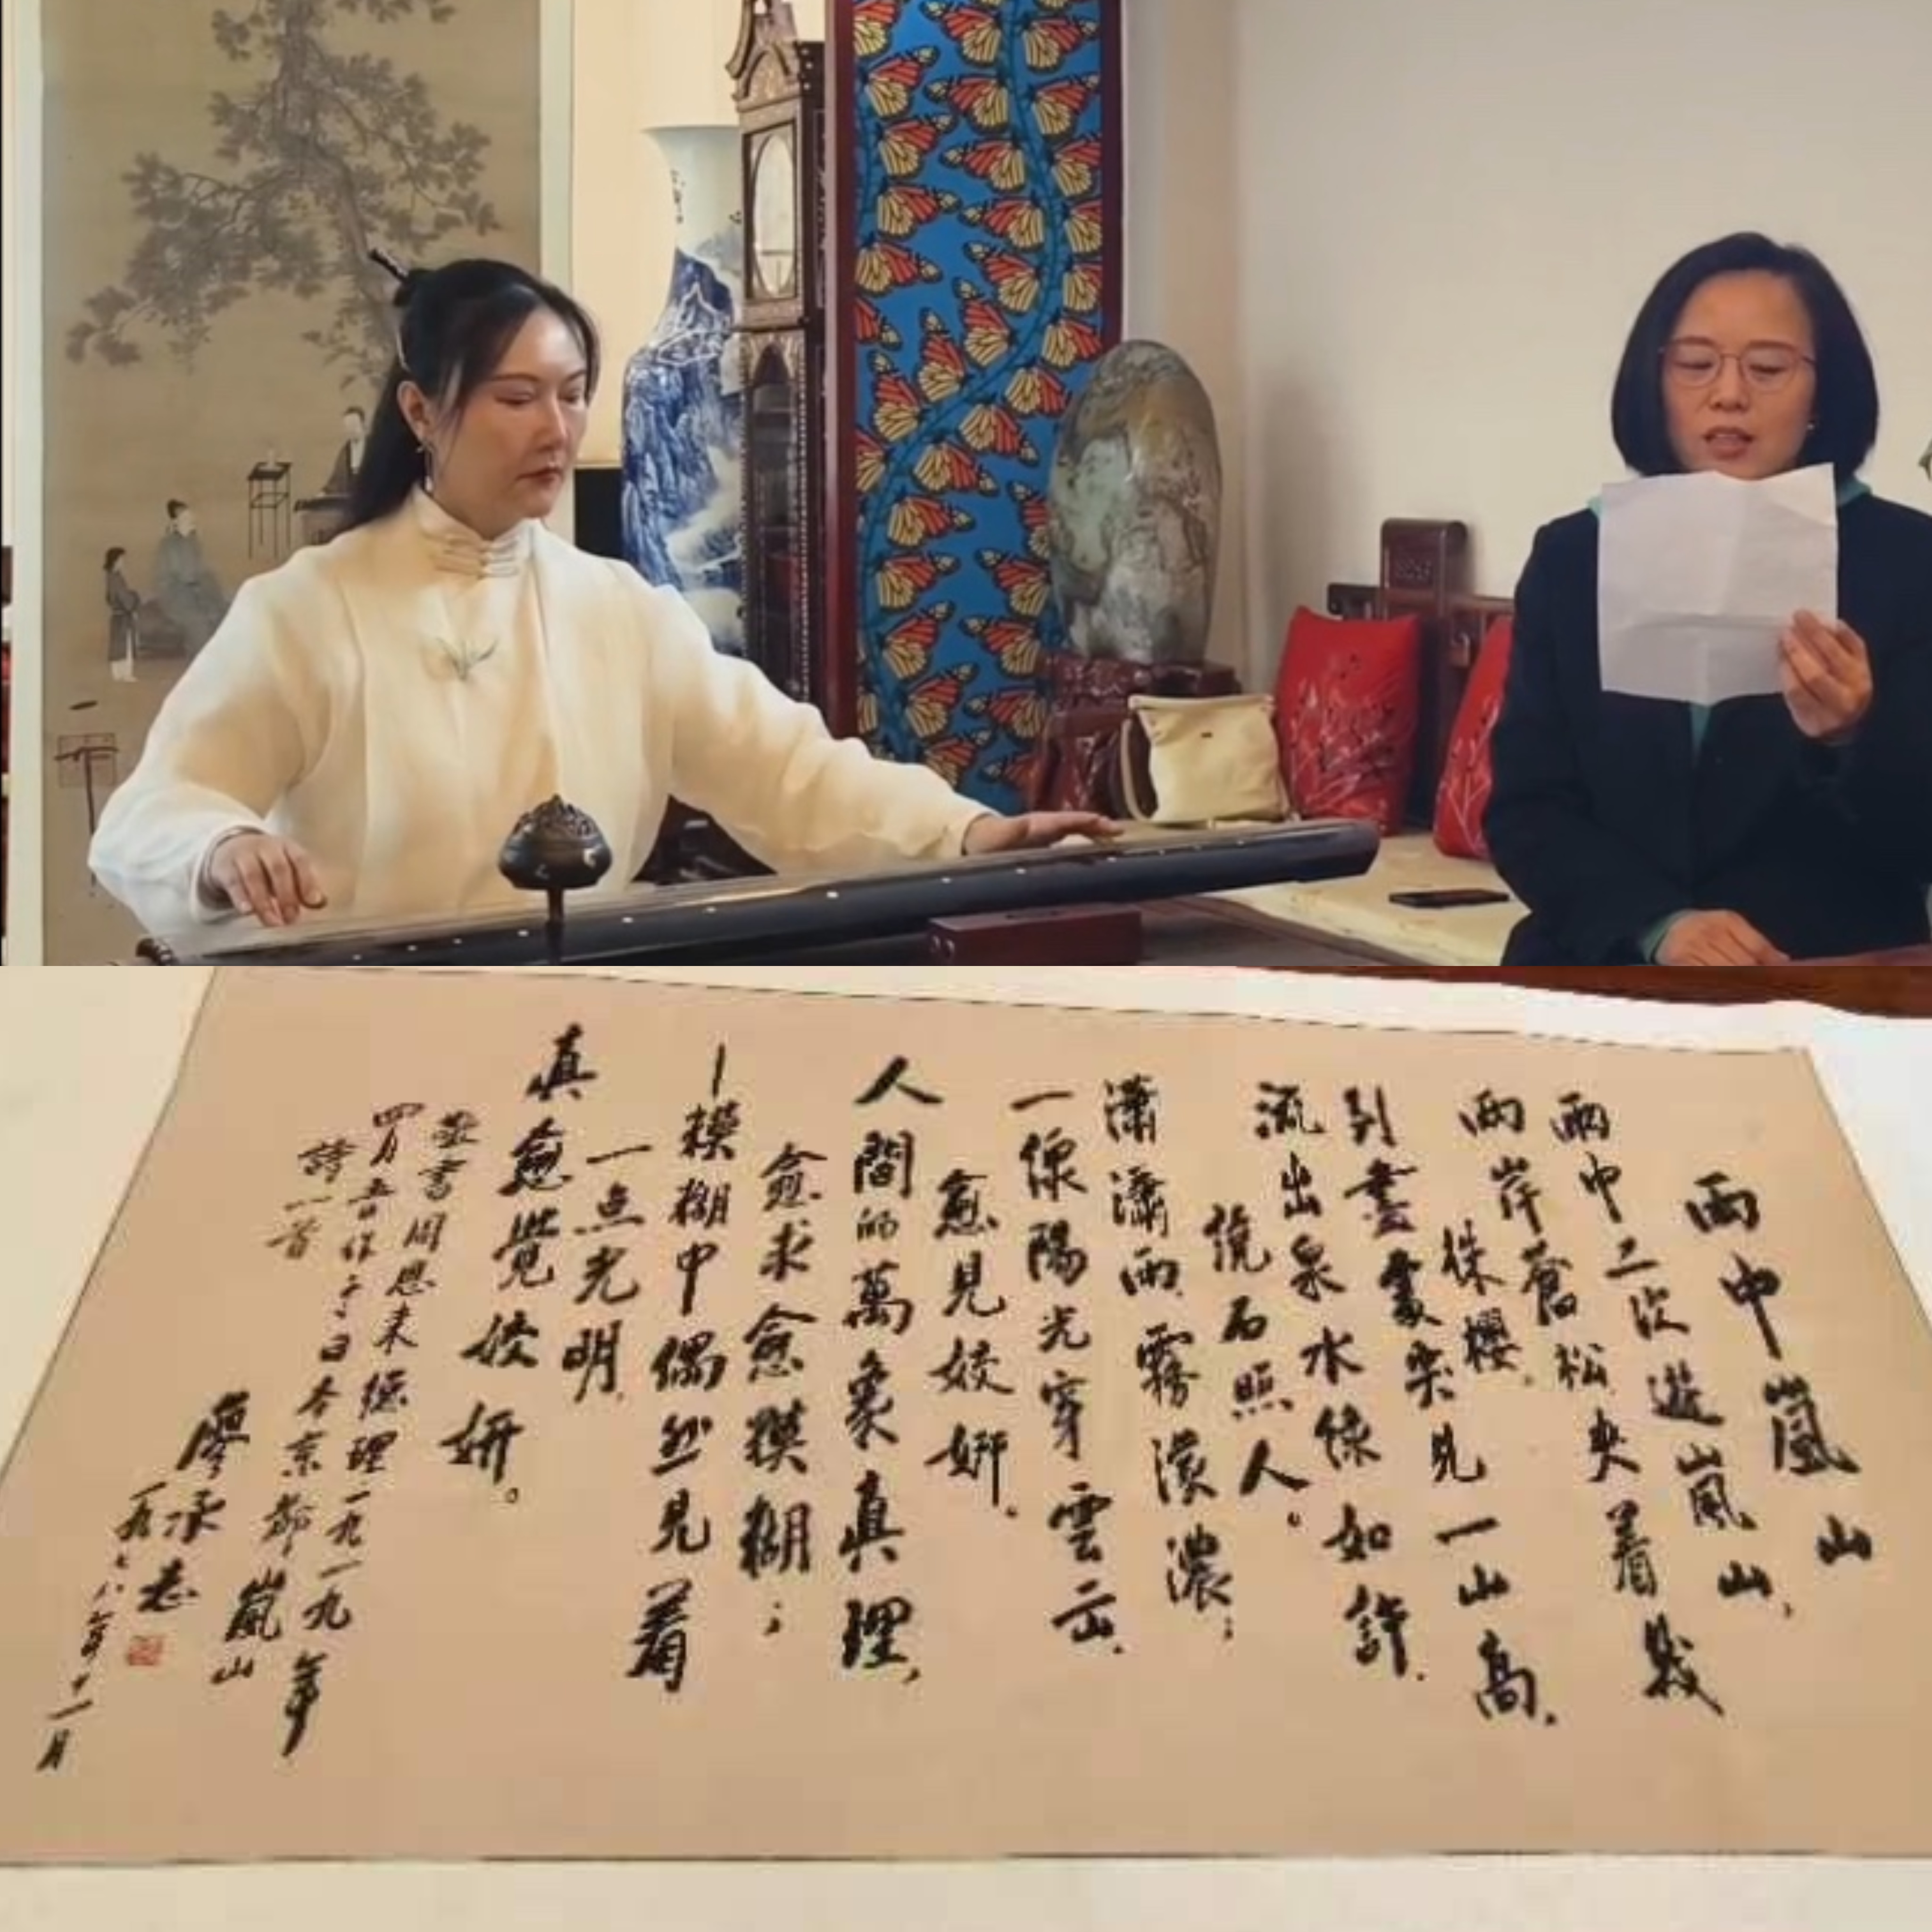 雨中嵐山
雨中二次遊嵐山,
兩岸蒼松夾着幾
株櫻.
到盡處突見一山高.
流出泉水綠如許.
繞石照人。
瀟瀟雨霧濛濃;
一線陽光穿雲出.
愈見姣妍。
人間的萬象真理,
愈求愈模糊;
—模糊中偶然見着
一点光明,
真愈覺姣妍。
敬書周恩来總理一九一九年
四月五日作于日本京都嵐山
詩一首
廖承志
一九七八年十一月